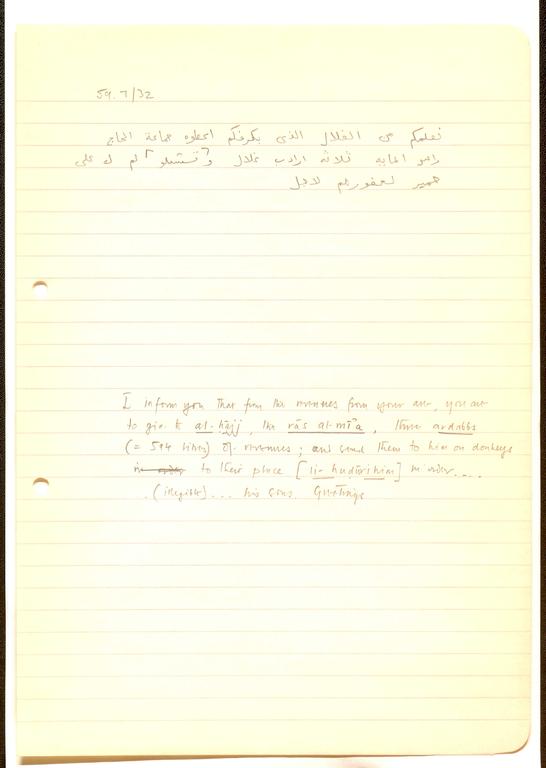 59.7/32
نعلمكم من الغلال الذى بكرفكم اعطوه جماعة الحاج
راس المايه ثلاثة ارادب غلال وتشيلو لم له على
حمير لحضورهم لاجل
I inform you that from the revenues from your area, you are
to give to al-ḥājj, the rās al-mīʾa, three ardabbs
(= 594 litres) of revenues; and send them to him on donkeys
to their place [li-ḥuḍūrihim] in order....
(illegible).... his sons. Greetings